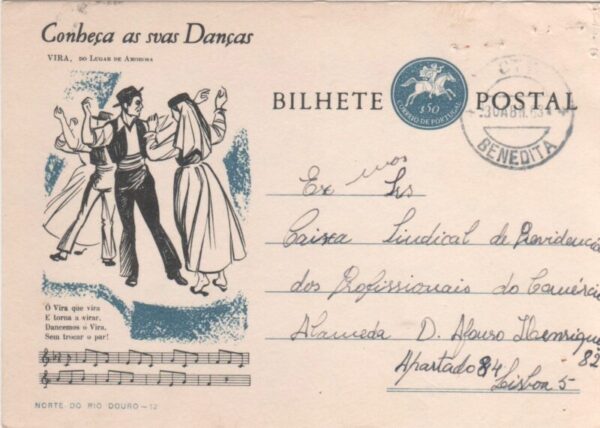 Conheça as suas Danças
VIRA, DO LUGAR DE AMOROSA
BILHETE POSTAL
CORREIO DE PORTUGAL
1$50
CTT
30 ABR. 63
BENEDITA
Ex mos Srs
Caixa Sindical de Previdência
dos Profissionais do Comércio
Alameda D. Afonso Henriques
82
Apartado 84
Lisboa 5
Ó Vira que vira
E torna a virar,
Dancemos o Vira,
Sem trocar o par!
NORTE DO RIO DOURO — 12